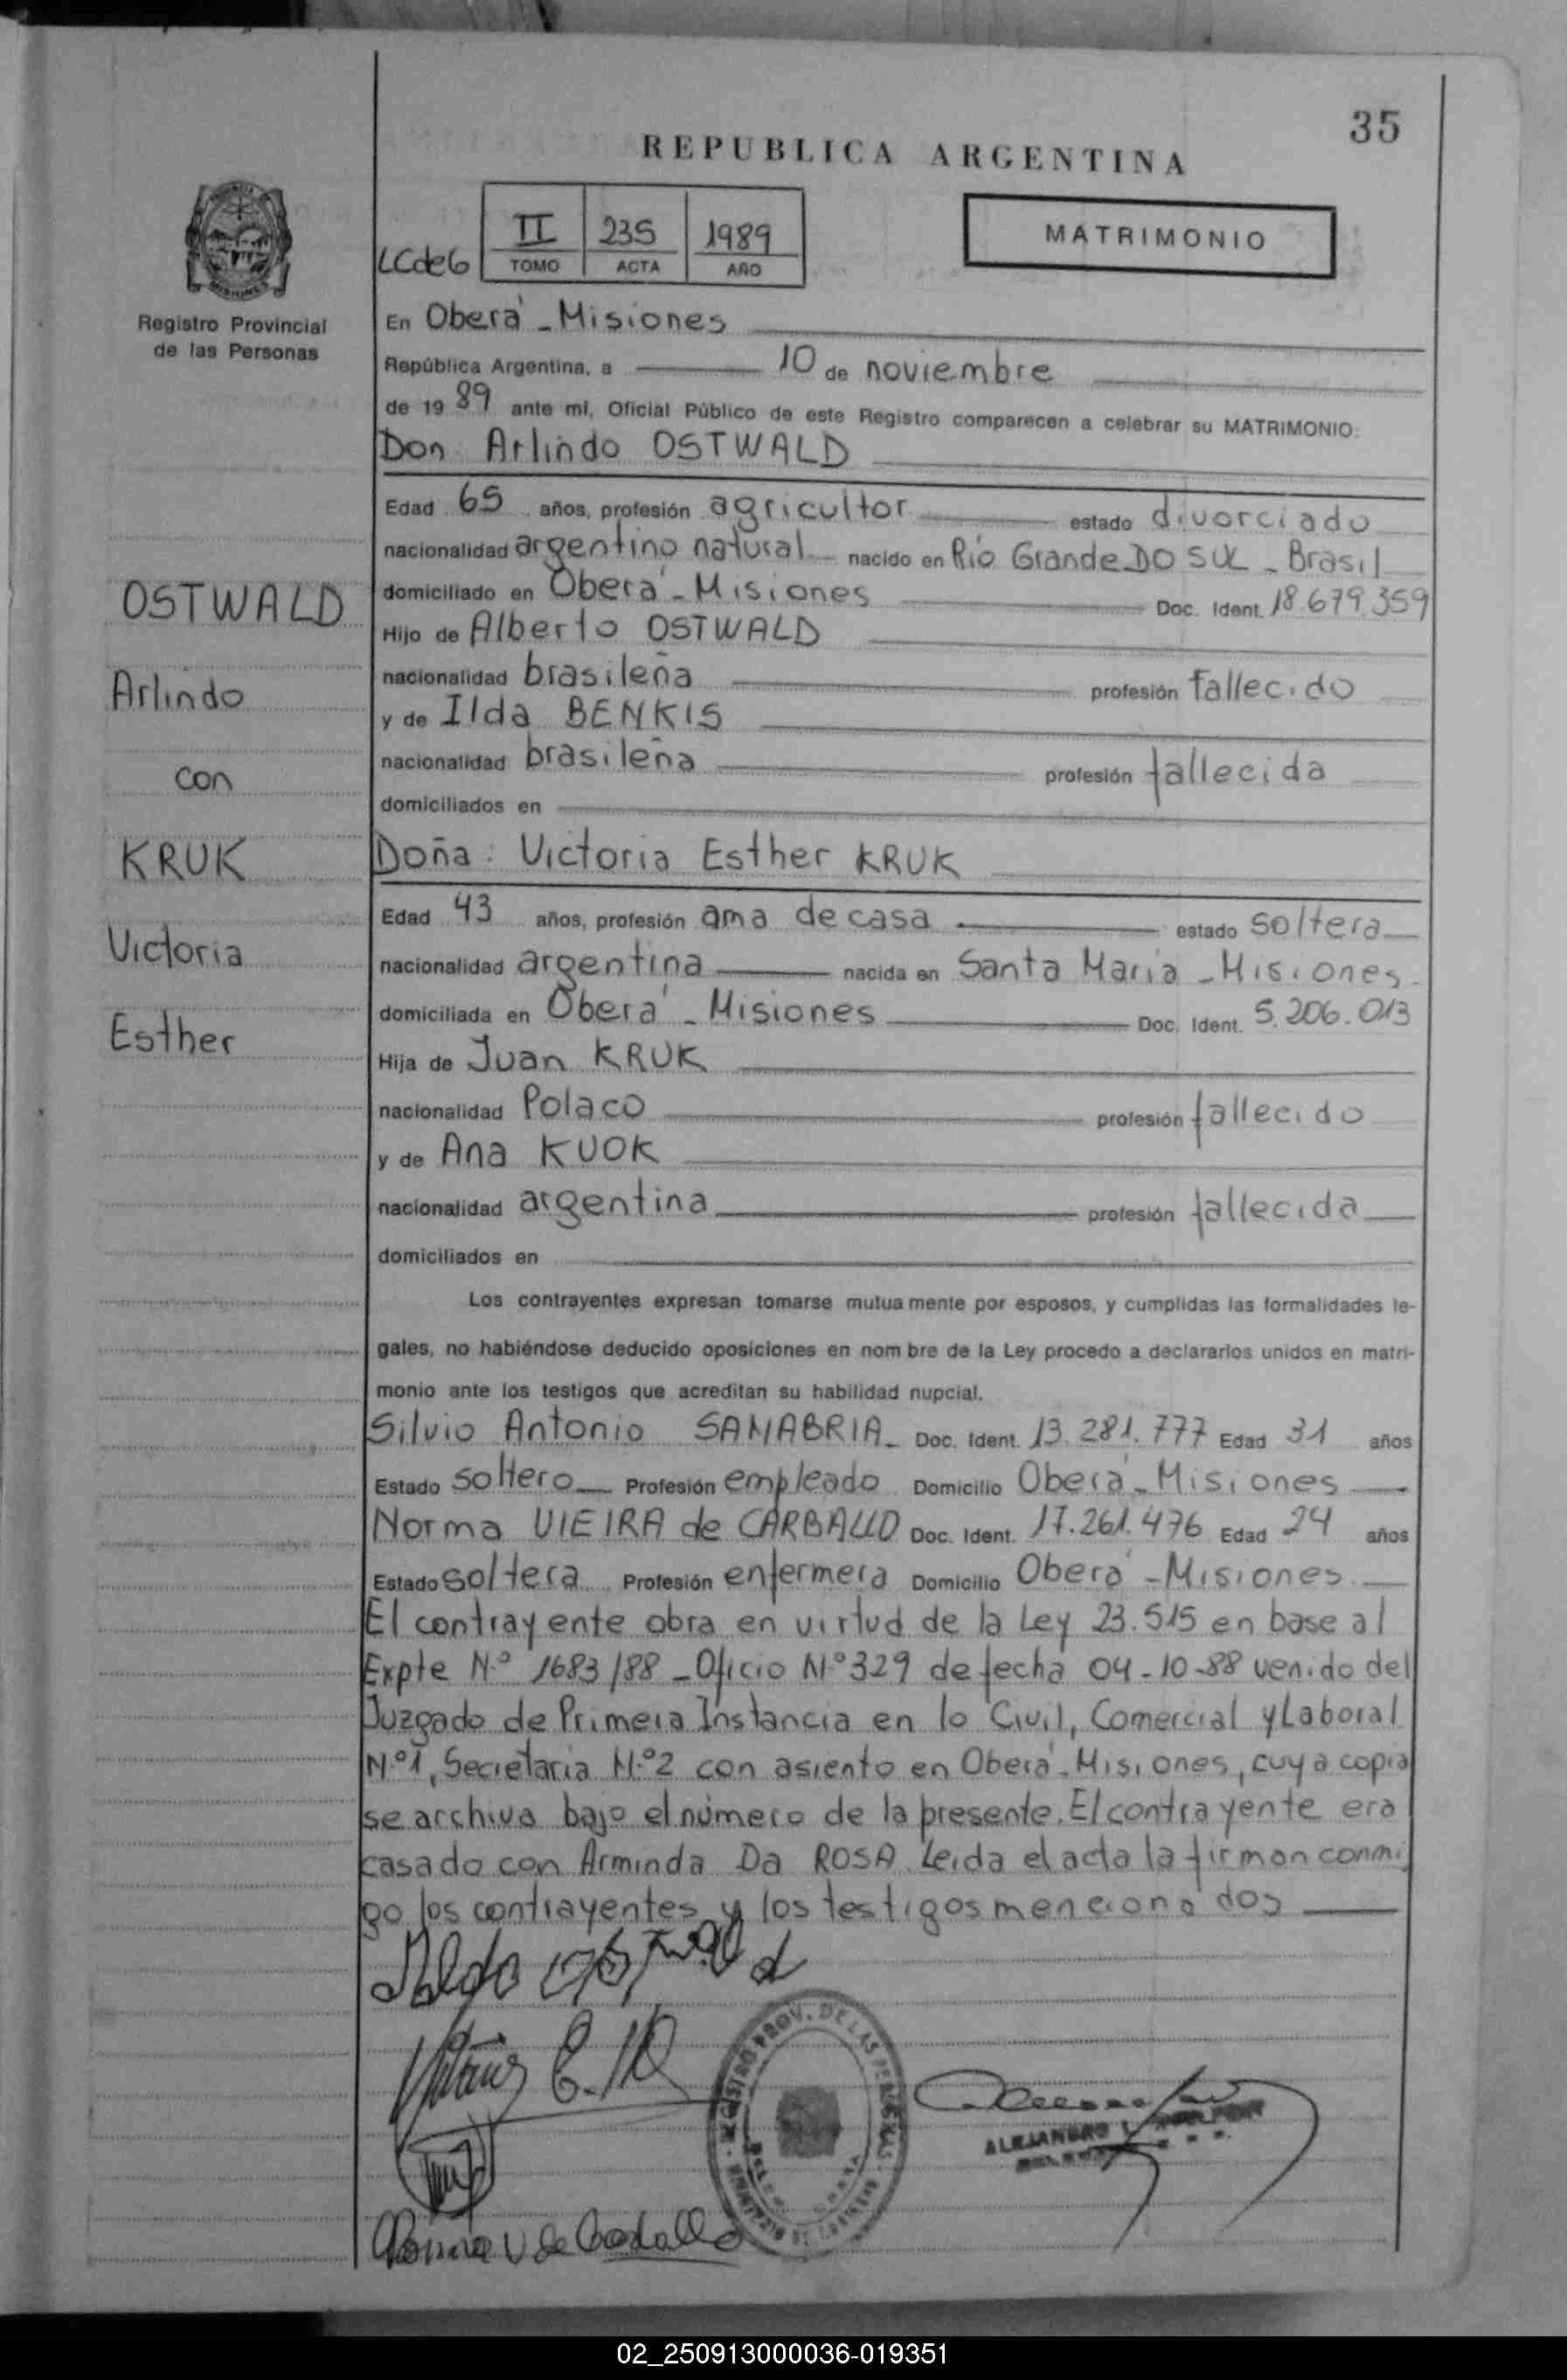 35
REPUBLICA ARGENTINA
MATRIMONIO
LCdeG
II 235 1989
TOMO ACTA AÑO
MISIONES
Registro Provincial
de las Personas
En Oberá - Misiones
República Argentina, a 10 de noviembre
de 19 89 ante mí, Oficial Público de este Registro comparecen a celebrar su MATRIMONIO:
Don Arlindo OSTWALD
Edad 65 años, profesión agricultor estado divorciado
nacionalidad argentino natural nacido en Río Grande DO SUL - Brasil
domiciliado en Oberá - Misiones Doc. Ident. 18.679.359
Hijo de Alberto OSTWALD
nacionalidad brasileña profesión fallecido
y de Ilda BENKIS
nacionalidad brasileña profesión fallecida
domiciliados en
OSTWALD
Arlindo
con
KRUK
Victoria
Esther
Doña: Victoria Esther KRUK
Edad 43 años, profesión ama de casa estado soltera
nacionalidad argentina nacida en Santa María - Misiones
domiciliada en Oberá - Misiones Doc. Ident. 5.206.013
Hija de Juan KRUK
nacionalidad Polaco profesión fallecido
y de Ana KUOK
nacionalidad argentina profesión fallecida
domiciliados en
Los contrayentes expresan tomarse mutuamente por esposos, y cumplidas las formalidades le-
gales, no habiéndose deducido oposiciones en nombre de la Ley procedo a declararlos unidos en matri-
monio ante los testigos que acreditan su habilidad nupcial.
Silvio Antonio SANABRIA - Doc. Ident. 13.281.777 Edad 31 años
Estado soltero Profesión empleado Domicilio Oberá - Misiones
Norma VIEIRA de CARBALLO Doc. Ident. 17.261.476 Edad 24 años
Estado soltera Profesión enfermera Domicilio Oberá - Misiones
El contrayente obra en virtud de la Ley 23.515 en base al
Expte N.º 1683/88 - Oficio N.º 329 de fecha 04-10-88 venido del
Juzgado de Primera Instancia en lo Civil, Comercial y Laboral
N.º 1, Secretaria N.º 2 con asiento en Oberá - Misiones, cuya copia
se archiva bajo el número de la presente. El contrayente era
casado con Arminda Da ROSA. Leida el acta la firman conmi
go los contrayentes y los testigos mencionados
REGISTRO PROV. DE LAS PERSONAS
MINISTERIO DE GOBIERNO
ALEJANDRO
Norma V de Carballo
02_250913000036-019351